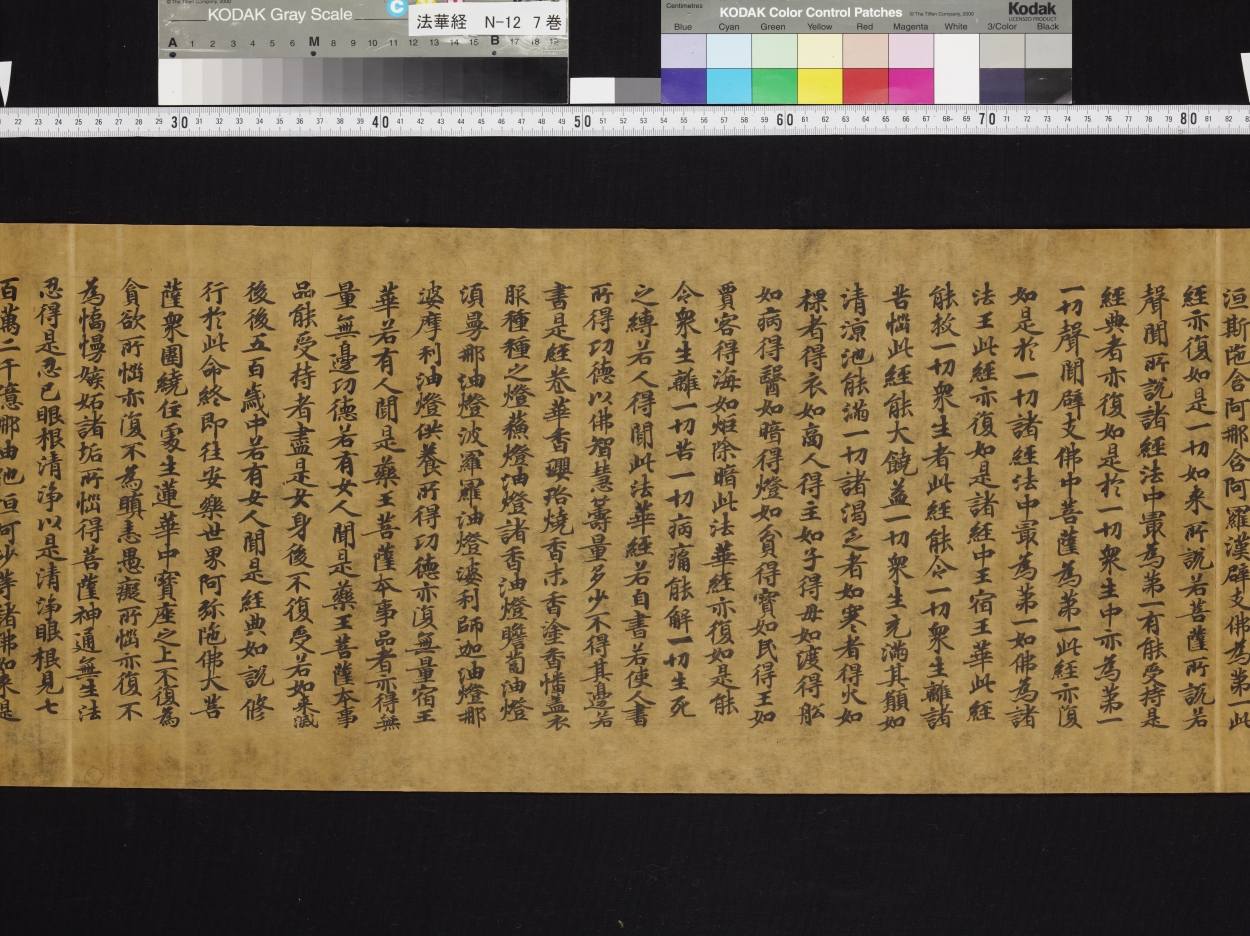 © The Tiffen Company, 2000
KODAK Gray Scale
法華経 N-12 7巻
A 1 2 3 4 5 6 M 8 9 10 11 12 13 14 15 B 17 18 19
Centimetres
KODAK Color Control Patches
© The Tiffen Company, 2000
Kodak
LICENSED PRODUCT
Blue Cyan Green Yellow Red Magenta White 3/Color Black
22 23 24 25 26 27 28 29 30 31 32 33 34 35 36 37 38 39 40 41 42 43 44 45 46 47 48 49 50 51 52 53 54 55 56 57 58 59 60 61 62 63 64 65 66 67 68 69 70 71 72 73 74 75 76 77 78 79 80 81 82
洹斯陁含阿那含阿羅漢辟支佛為第一此
經亦復如是一切如来所說若菩薩所說若
聲聞所說諸經法中最為第一有能受持是
經典者亦復如是於一切衆生中亦為第一
一切聲聞辟支佛中菩薩為第一此經亦復
如是於一切諸經法中最為第一如佛為諸
法王此經亦復如是諸經中王宿王華此經
能救一切衆生者此經能令一切衆生離諸
苦惱此經能大饒益一切衆生充滿其願如
清涼池能滿一切諸渴乏者如寒者得火如
裸者得衣如商人得主如子得母如渡得舩
如病得醫如暗得燈如貧得寶如民得王如
賈客得海如炬除暗此法華經亦復如是能
令衆生離一切苦一切病痛能解一切生死
之縛若人得聞此法華經若自書若使人書
所得功德以佛智慧籌量多少不得其邊若
書是經卷華香瓔珞燒香末香塗香幡盖衣
服種種之燈蘇燈油燈諸香油燈瞻蔔油燈
湏曼那油燈波羅羅油燈婆利師加油燈那
婆摩利油燈供養所得功德亦復無量宿王
華若有人聞是藥王菩薩本事品者亦得無
量無邊功德若有女人聞是藥王菩薩本事
品能受持者盡是女身後不復受若如来滅
後後五百歲中若有女人聞是經典如說修
行於此命終即往安樂世界阿弥陁佛大菩
薩衆圍繞住處生蓮華中寶座之上不復為
貪欲所惱亦復不為瞋恚愚癡所惱亦復不
為憍慢嫉妬諸垢所惱得菩薩神通無生法
忍得是忍已眼根清淨以是清淨眼根見七
百萬二千億那由他恒河沙等諸佛如来是